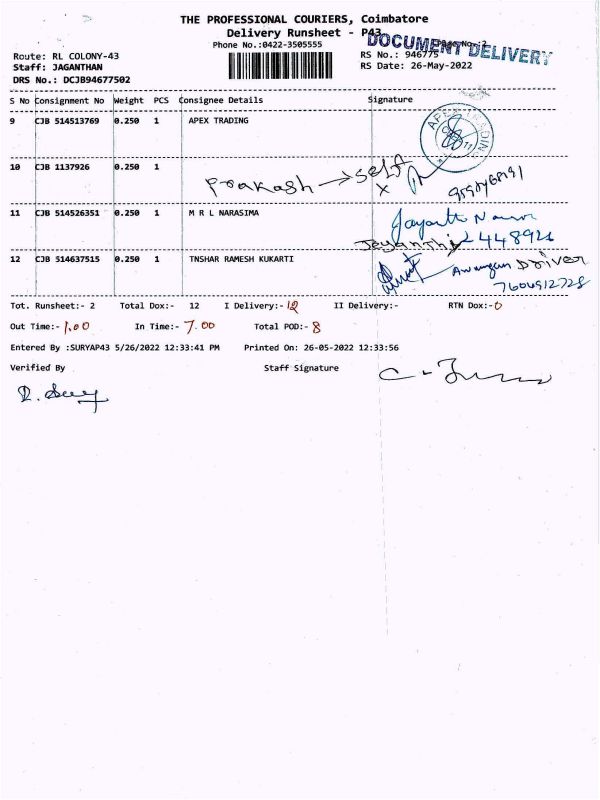 THE PROFESSIONAL COURIERS, Coimbatore
Delivery Runsheet - P43
DOCUMENT DELIVERY
Phone No.:0422-3505555
Route: RL COLONY-43
RS No.: 946775
Staff: JAGANTHAN
RS Date: 26-May-2022
DRS No.: DCJB94677502
S No Consignment No Weight PCS Consignee Details Signature
9 CJB 514513769 0.250 1 APEX TRADING
APEX TRADING
10 CJB 1137926 0.250 1
Prakash → Self
x
11 CJB 514526351 0.250 1 M R L NARASIMA
Jayanthi
Jeyanthi 448926
12 CJB 514637515 0.250 1 TNSHAR RAMESH KUKARTI
Driver
7604912728
Tot. Runsheet:- 2 Total Dox:- 12 I Delivery:- 12 II Delivery:- RTN Dox:- 0
Out Time:- 1.00 In Time:- 7.00 Total POD:- 8
Entered By :SURYAP43 5/26/2022 12:33:41 PM Printed On: 26-05-2022 12:33:56
Verified By Staff Signature